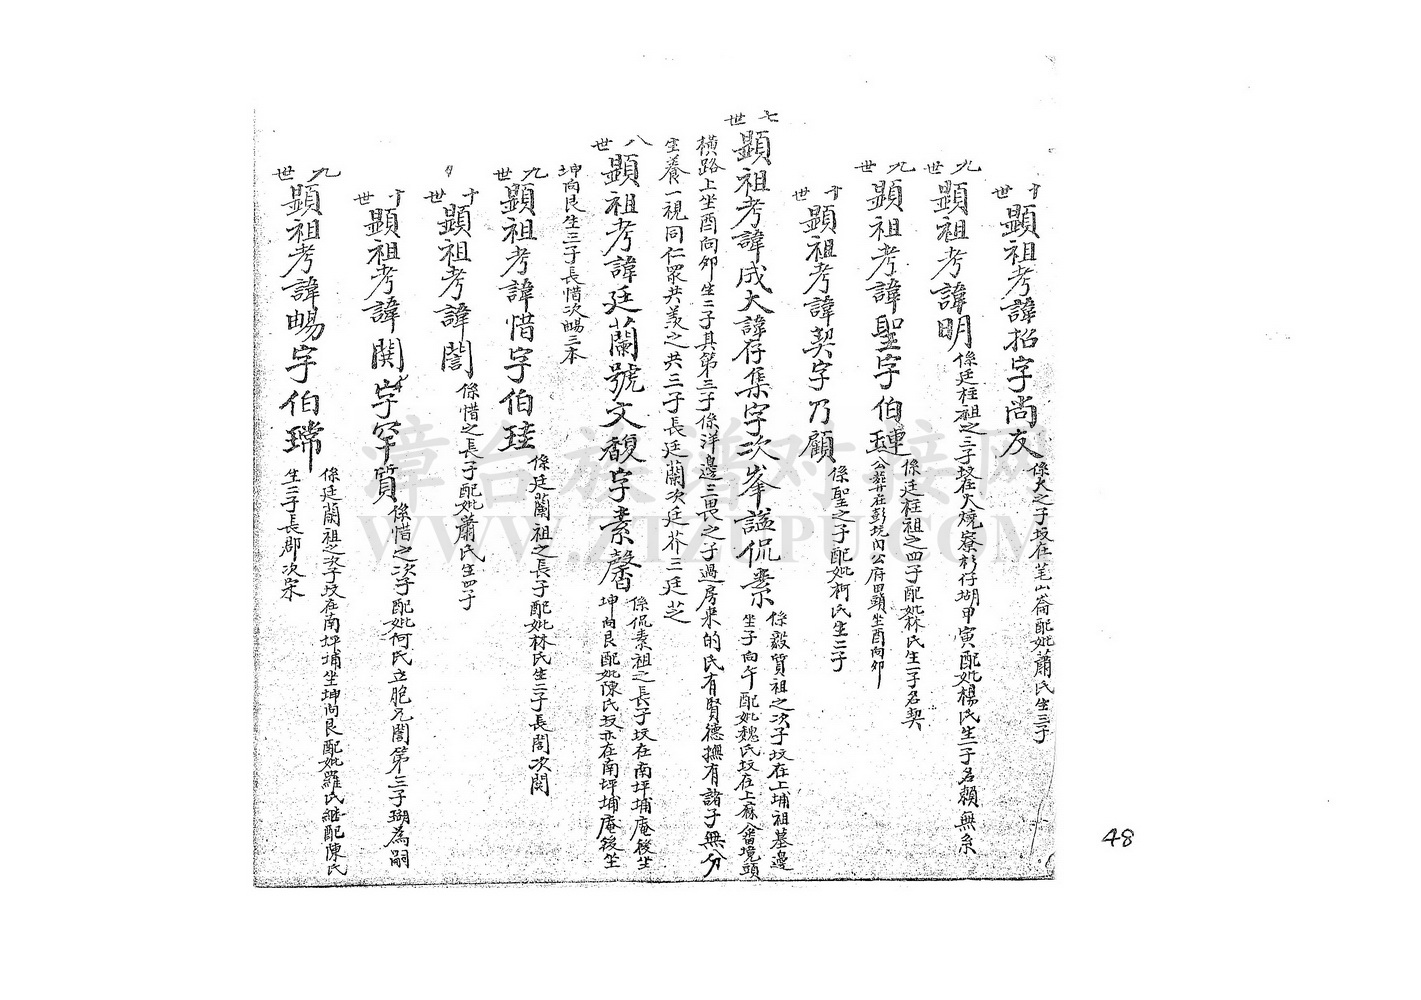 十世
顯祖考諱招字尚友
係大之子坟在笔山崙配妣蕭氏生三子
九世
顯祖考諱明
係廷柱祖之三子坟在火燒寮杉仔坳甲寅配妣楊氏生一子名賴無系
九世
顯祖考諱聖字伯璉
係廷柱祖之四子配妣林氏生一子名契
公葬在彭坑內公府田頭坐酉向卯
十世
顯祖考諱契字乃顧
係聖之子配妣柯氏生三子
七世
顯祖考諱成大諱存集字次峯謚侃素
係毅質祖之次子坟在上埔祖墓邊
坐子向午配妣魏氏坟在上蔴畬境頭
橫路上坐酉向卯生二子其第三子係洋邊三畏之子過房來的氏有賢德撫有諸子無分
生養一視同仁眾共羡之共三子長廷蘭次廷芥三廷芝
八世
顯祖考諱廷蘭號文馥字素馨
係侃素祖之長子坟在南坪埔庵後坐
坤向艮配妣陳氏坟亦在南坪埔庵後坐
坤向艮生三子長惜次暘三本
九世
顯祖考諱惜字伯珪
係廷蘭祖之長子配妣林氏生二子長誾次閱
十世
顯祖考諱誾
係惜之長子配妣蕭氏生四子
十世
顯祖考諱閱字罕質
係惜之次子配妣何氏立胞兄誾第三子瑚為嗣
九世
顯祖考諱暘字伯瑞
係廷蘭祖之次子坟在南坪埔坐坤向艮配妣羅氏継配陳氏
生二子長郡次宋
48
漳台族谱对接网
WWW.ZTZUPU.COM